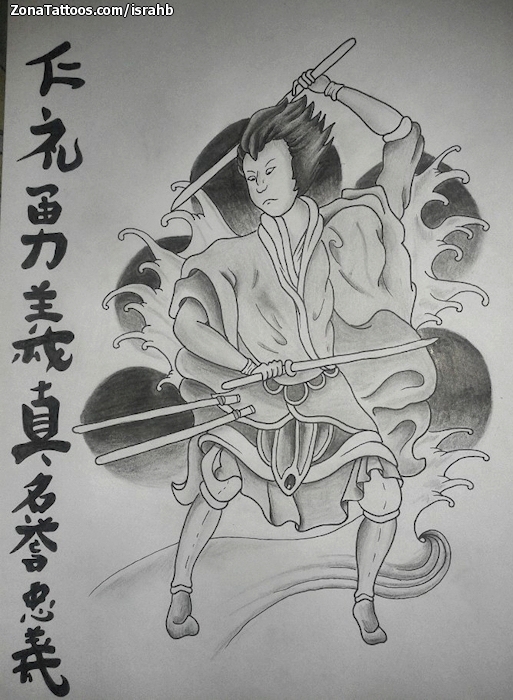 ZonaTattoos.com/israhb
仁礼勇義真名誉忠義